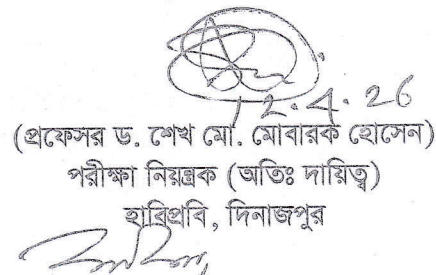 12.4.26
(প্রফেসর ড. শেখ মো. মোবারক হোসেন)
পরীক্ষা নিয়ন্ত্রক (অতিঃ দায়িত্ব)
হাবিপ্রবি, দিনাজপুর